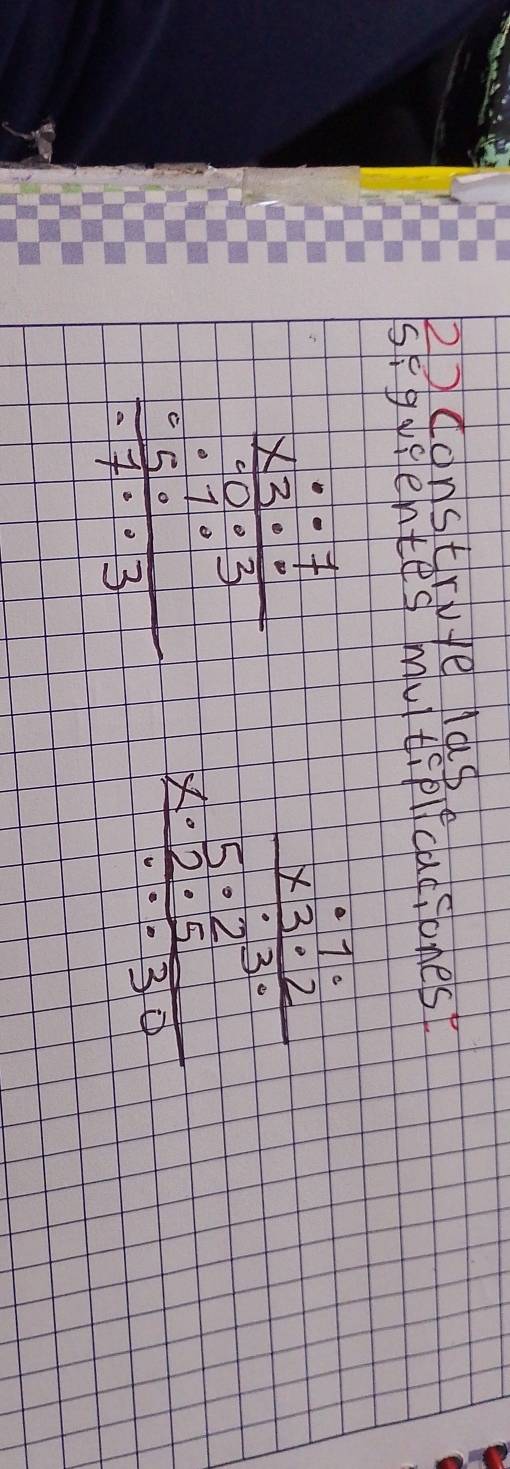 2) Construye las
siguientes multiplicaciones:
••7
x3••
•0•3
•1•
•5•
•7••3
•1•
x3•2
•3•
5•2
x•2•5
•••30